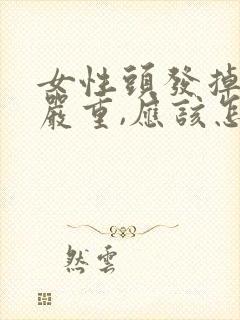 女性頭發掉
嚴重,應該怎
然雲